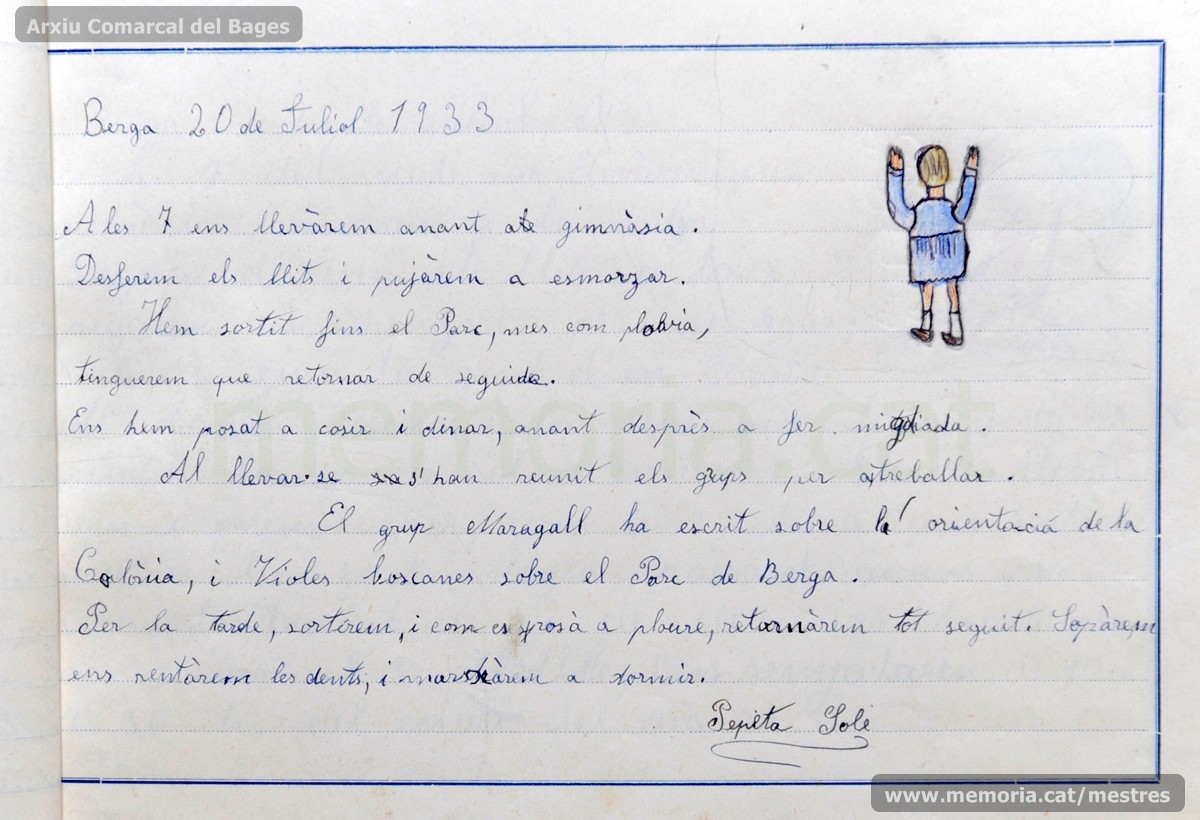 Arxiu Comarcal del Bages
Berga 20 de Juliol 1933
A les 7 ens llevàrem anant a gimnàsia.
Desferem els llits i pujàrem a esmorzar.
Hem sortit fins el Parc, mes com plovia,
tinguerem que retornar de seguida.
Ens hem posat a cosir i dinar, anant desprès a fer migdiada.
Al llevar-se s'han reunit els grups per a treballar.
El grup Maragall ha escrit sobre l' orientació de la
Colònia, i Violes boscanes sobre el Parc de Berga.
Per la tarde, sortirem, i com es posà a ploure, retornàrem tot seguit. Sopàrem
ens rentàrem les dents, i marxàrem a dormir.
Pepita Solé
memoria.cat
www.memoria.cat/mestres